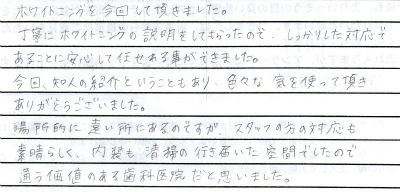 ホワイトニングを今回して頂きました。
丁寧にホワイトニングの説明をしてもらったので、しっかりした対応で
あることに安心して任せれる事ができました。
今回、知人の紹介ということもあり、色々な気を使って頂き
ありがとうございました。
場所的に遠い所にあるのですが、スタッフの方の対応も
素晴らしく、内装も清掃の行き届いた空間でしたので
通う価値のある歯科医院だと思いました。